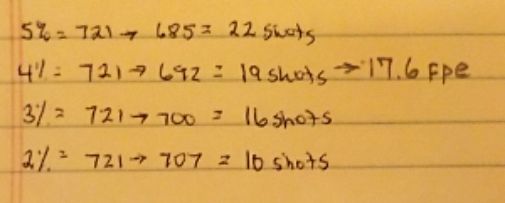 5% = 721 → 685 = 22 shots
4% = 721 → 692 = 19 shots → 17.6 fpe
3% = 721 → 700 = 16 shots
2% = 721 → 707 = 10 shots